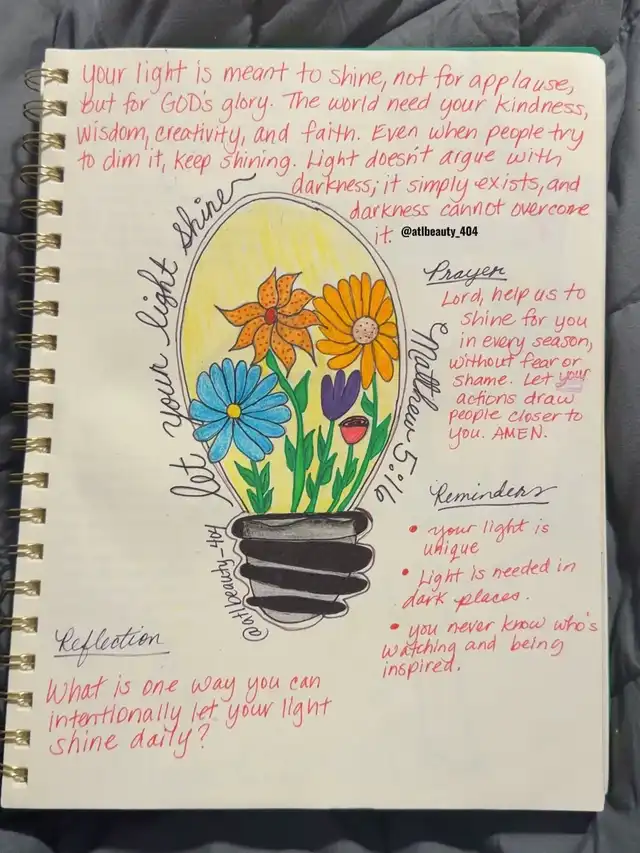 your light is meant to shine, not for applause,
but for GOD's glory. The world need your kindness,
wisdom, creativity, and faith. Even when people try
to dim it, keep shining. Light doesn't argue with
darkness; it simply exists, and
darkness cannot overcome
it. @atlbeauty_404
let your light shine
Matthew 5:16
@atlbeauty_404
Prayer
Lord, help us to
shine for you
in every season,
without fear or
shame. Let your
actions draw
people closer to
you. AMEN.
Reminders
• your light is
unique
• Light is needed in
dark places.
• you never know who's
watching and being
inspired.
Reflection
What is one way you can
intentionally let your light
shine daily?